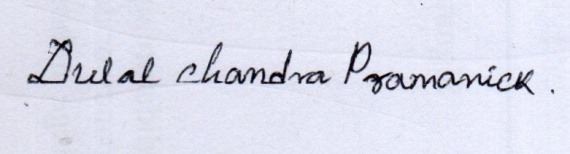 Dulal chandra Pramanick.